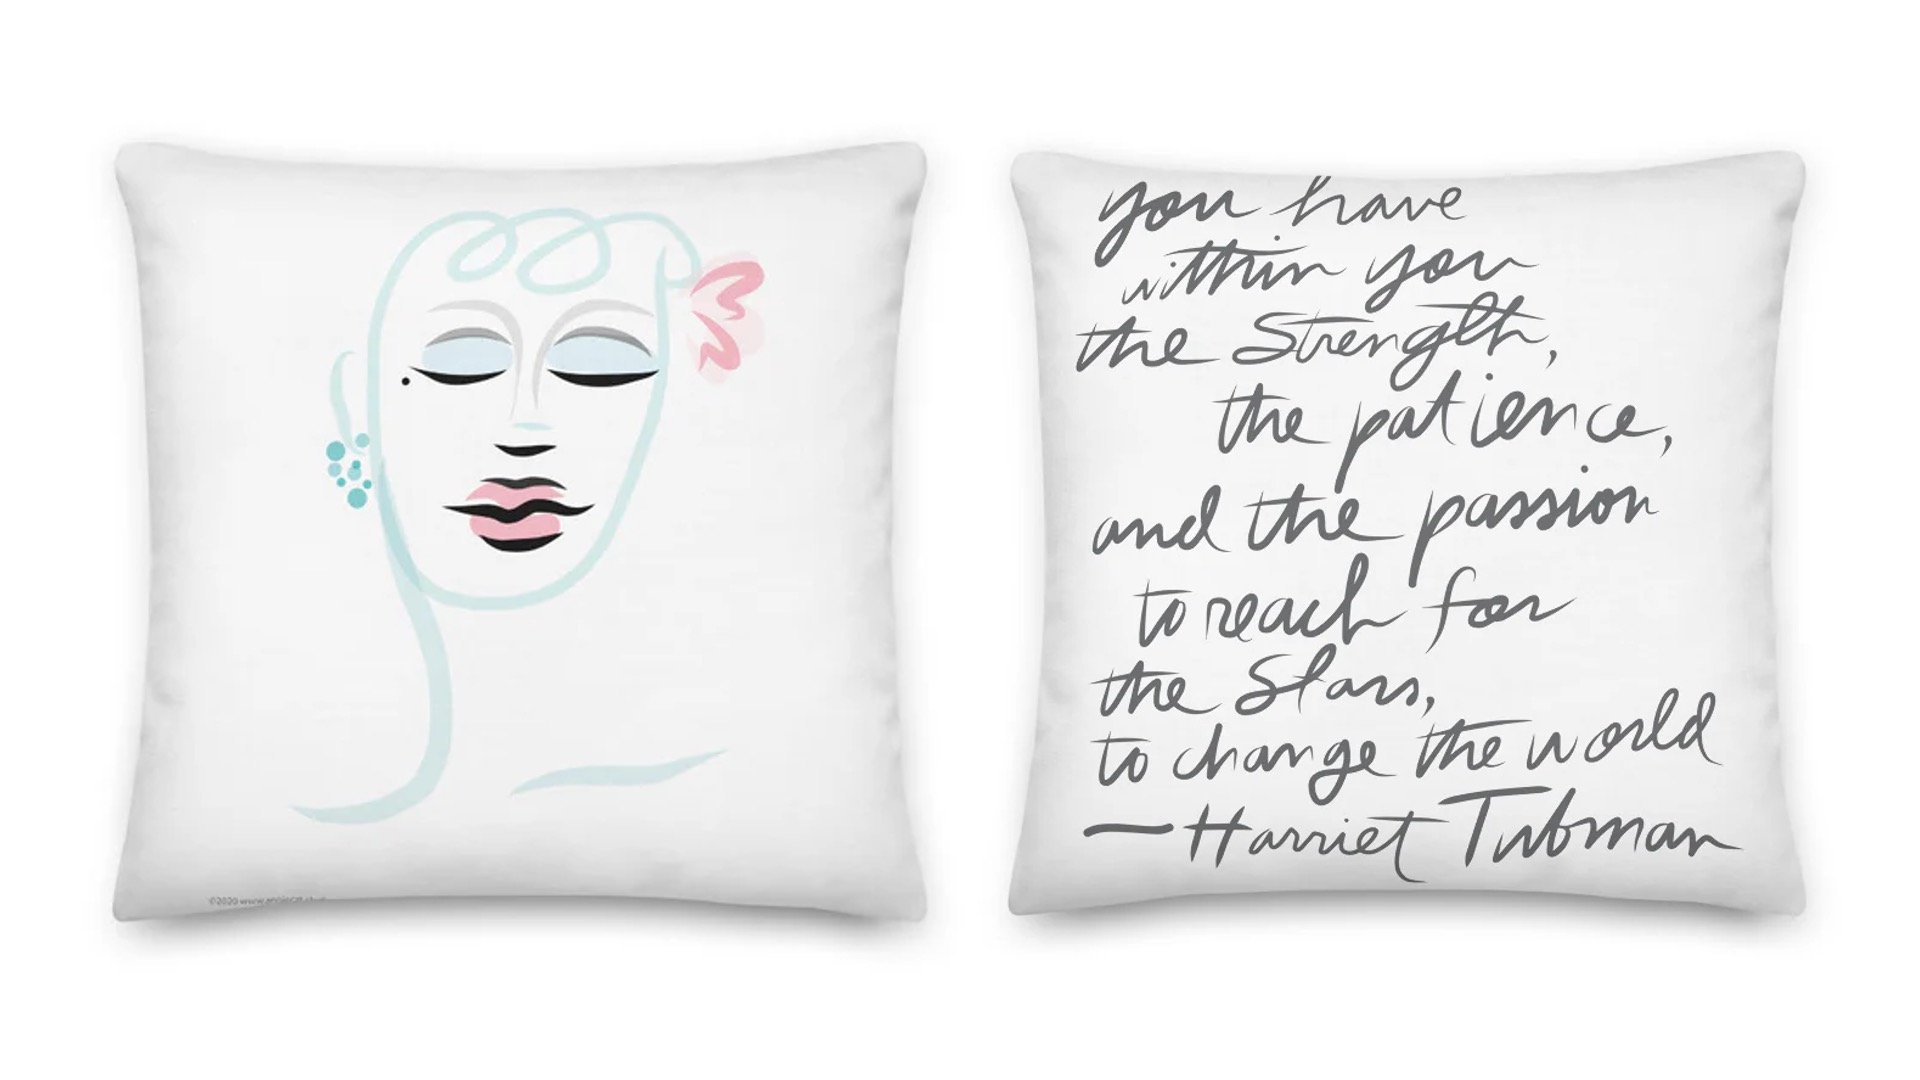 you have
within you
the Strength,
the patience,
and the passion
to reach for
the Stars,
to change the world
— Harriet Tubman
©2020